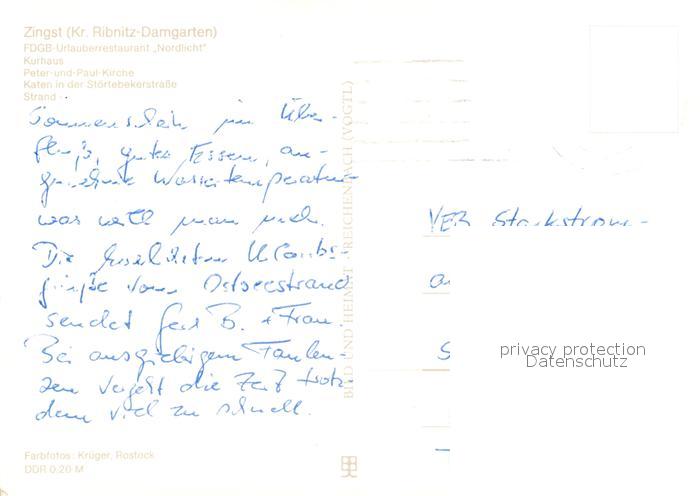 Zingst (Kr. Ribnitz-Damgarten)
FDGB-Urlauberrestaurant „Nordlicht"
Kurhaus
Peter-und-Paul-Kirche
Katen in der Störtebekerstraße
Strand
Sonnenschein im Über-
fluß, gutes Essen, an-
genehme Wassertemperatur-
was will man mehr.
Die herzlichsten Urlaubs-
grüße vom Ostseestrand
sendet B. + Frau.
Bei ausgiebigem Faulen-
zen vergeht die Zeit trotz-
dem viel zu schnell.
Farbfotos: Krüger, Rostock
DDR 0,20 M
BILD UND HEIMAT REICHENBACH (VOGTL)
VEB Starkstrom-
privacy protection
Datenschutz